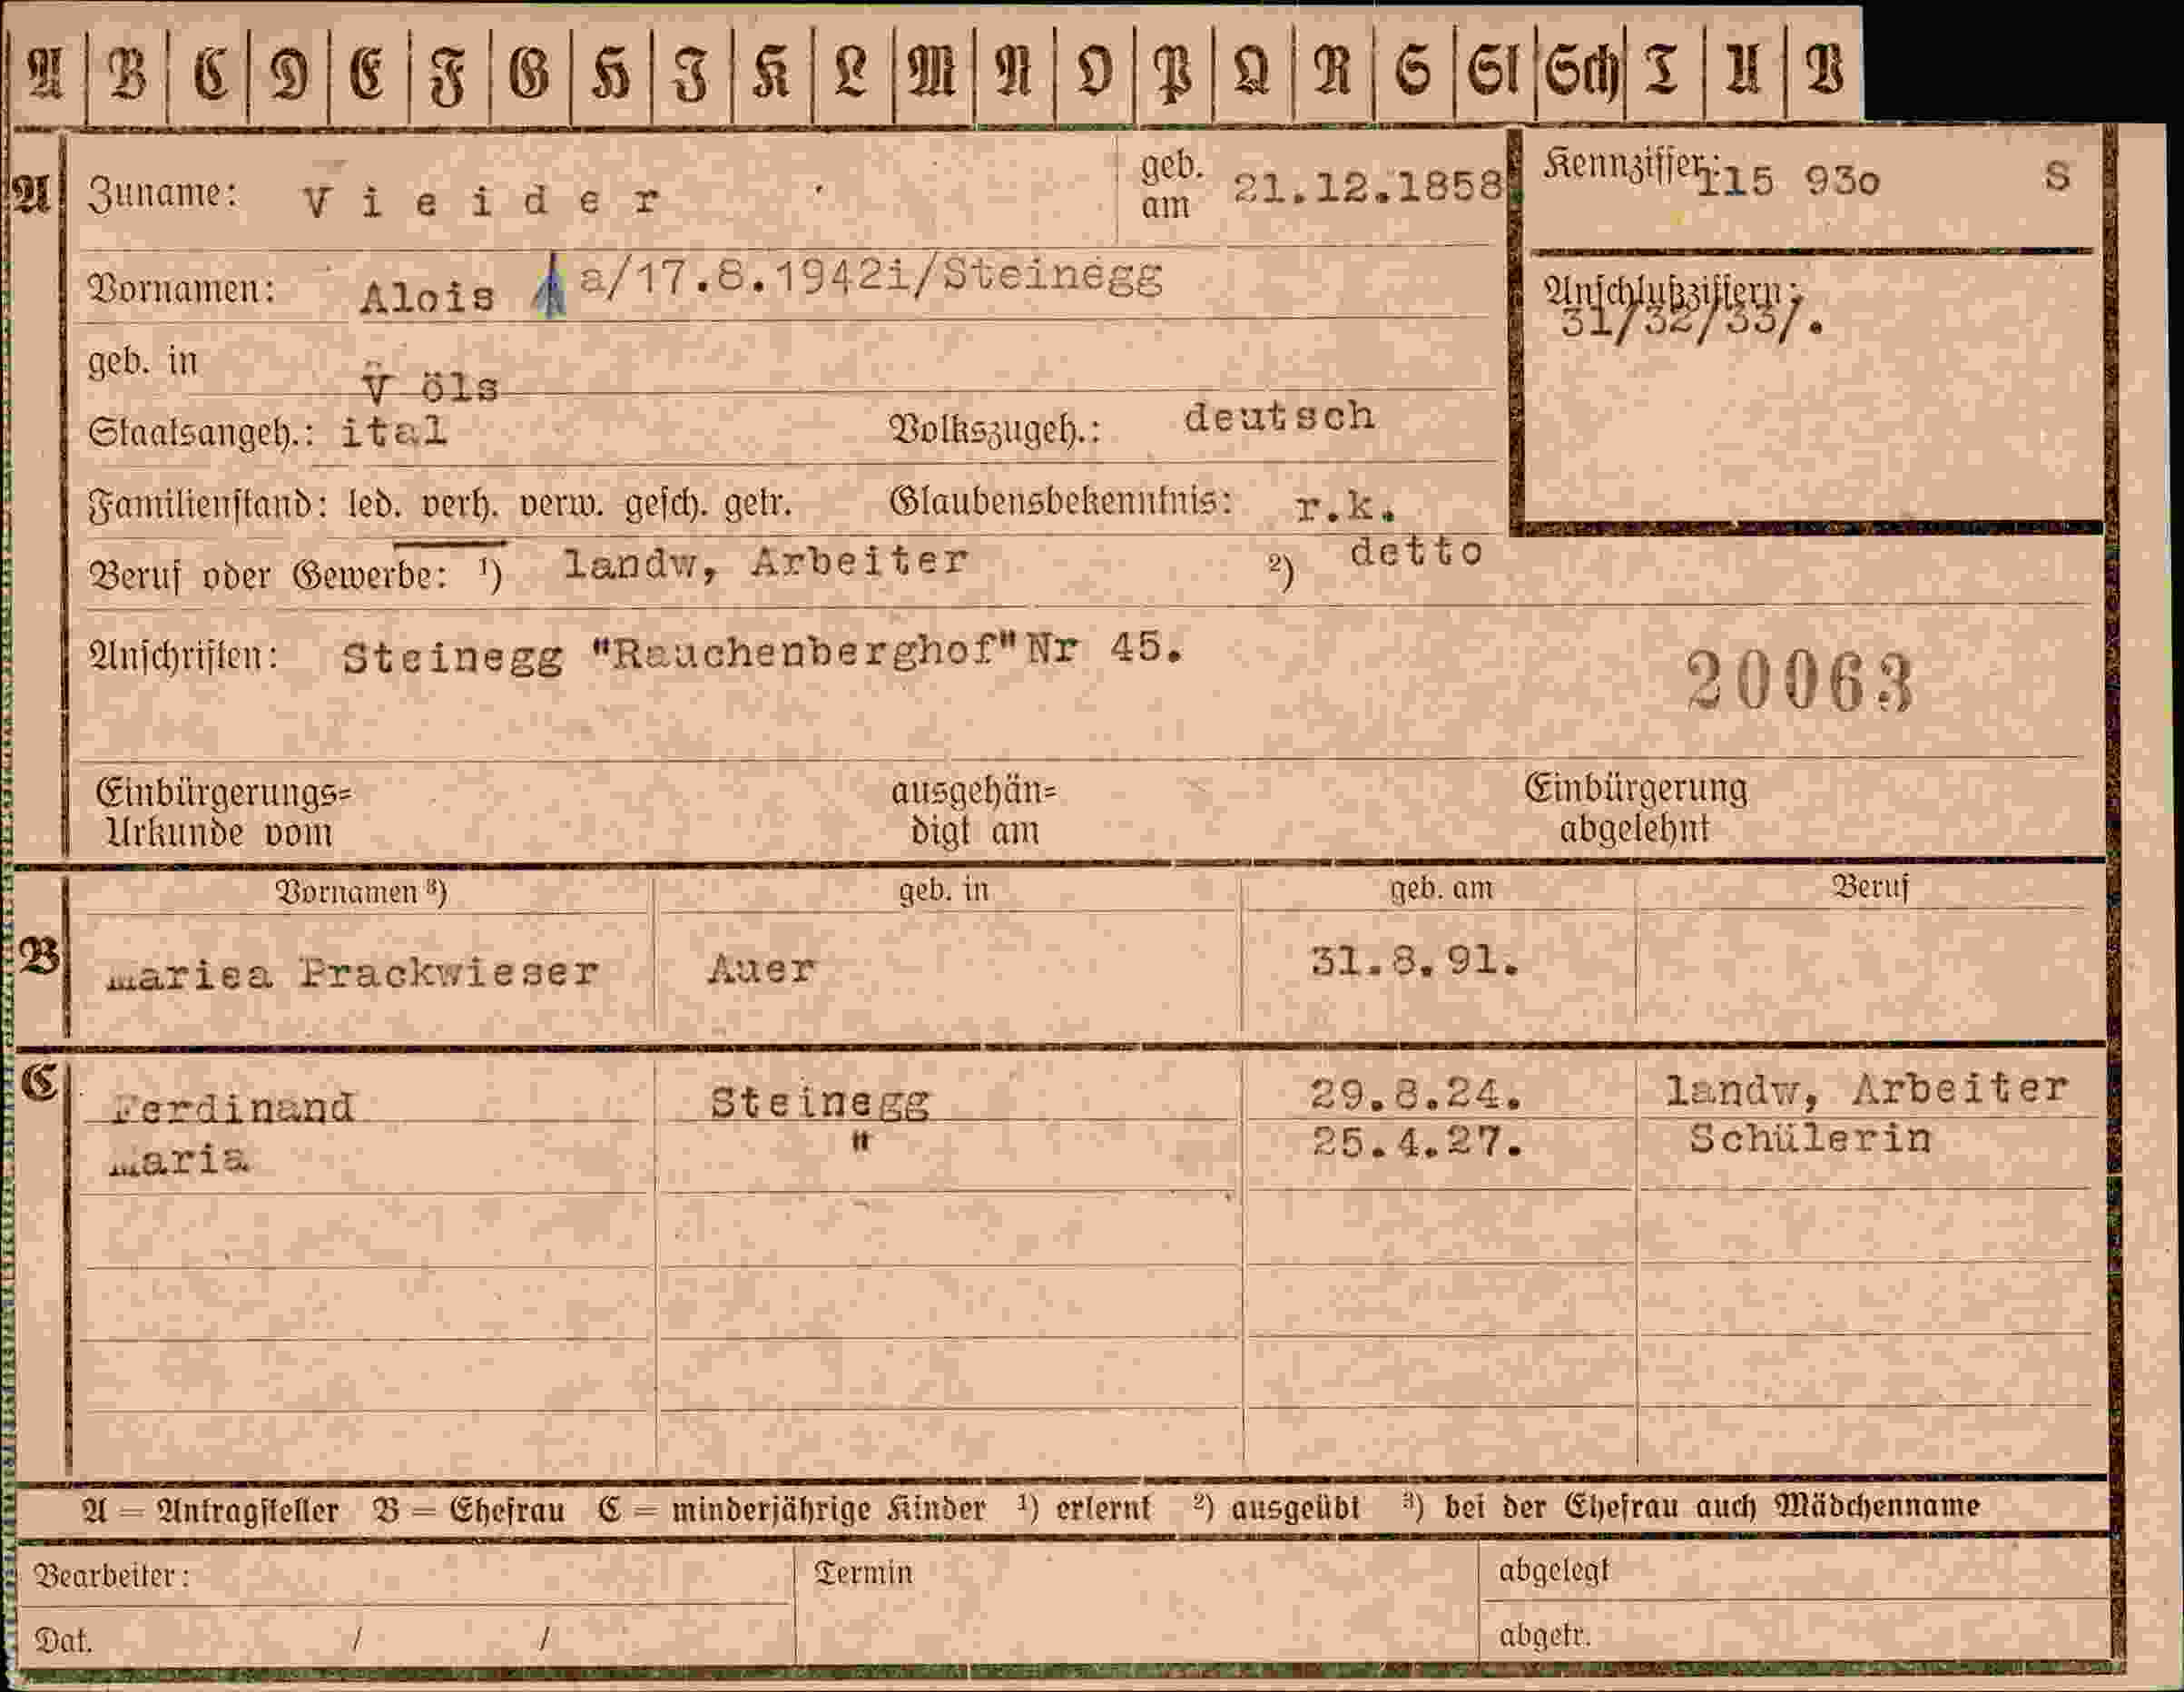 A B C D E F G H I K L M N O P Q R S St Sch T U V
A Zuname: Vieider geb. am 21.12.1858 Kennziffer: 115 930 S
Vornamen: Alois a/17.8.1942i/Steinegg Anschlußziffern: 31/32/33/.
geb. in Völs
Staatsangeh.: ital Volkszugeh.: deutsch
Familienstand: led. verh. verw. gesch. getr. Glaubensbekenntnis: r.k.
Beruf oder Gewerbe: ¹) landw, Arbeiter ²) detto
Anschriften: Steinegg "Rauchenberghof" Nr 45.
20063
Einbürgerungs= ausgehän= Einbürgerung
Urkunde vom digt am abgelehnt
Vornamen ³) geb. in geb. am Beruf
B Mariea Prackwieser Auer 31.8.91.
C Ferdinand Steinegg 29.8.24. landw, Arbeiter
Maria " 25.4.27. Schülerin
A = Antragsteller B = Ehefrau C = minderjährige Kinder ¹) erlernt ²) ausgeübt ³) bei der Ehefrau auch Mädchenname
Bearbeiter: Termin abgelegt
Dat. / / abgetr.